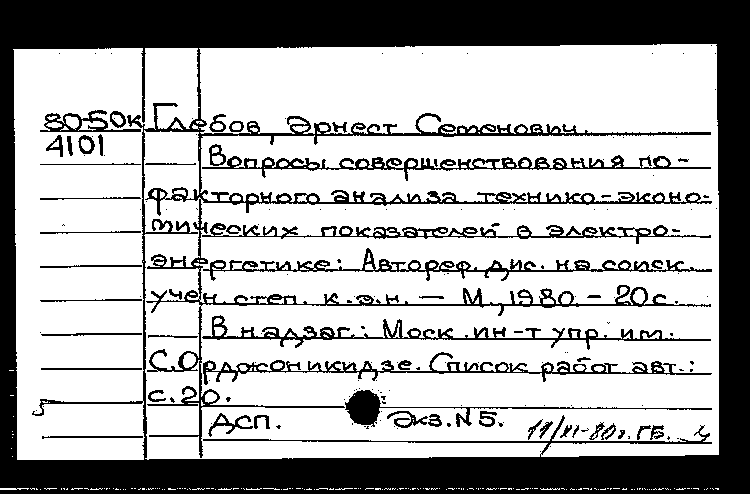 80-50к Глебов, Эрнест Семенович.
4101
Вопросы совершенствования по-
факторного анализа технико-эконо-
мических показателей в электро-
энергетике: Автореф. дис. на соиск.
учен. степ. к.э.н. — М., 1980. – 20 с.
В надзаг.: Моск. ин-т упр. им.
С. Орджоникидзе. Список работ авт.:
с. 20.
ДСП. Экз. N 5.